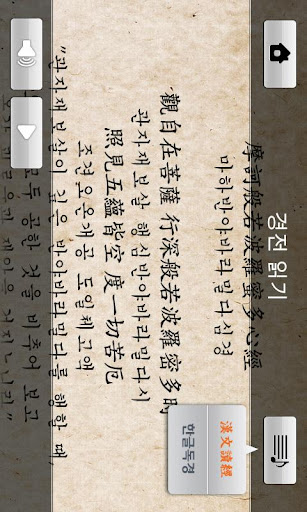 경전 읽기
漢文讀經
한글독경
摩訶般若波羅密多心經
마하반야바라밀다심경
觀自在菩薩 行深般若波羅密多時
관자재보살 행심반야바라밀다시
照見五蘊皆空 度一切苦厄
조견오온개공 도일체고액
"관자재보살이 깊은 반야바라밀다를 행할 때,
모두 공한 것을 비추어 보고